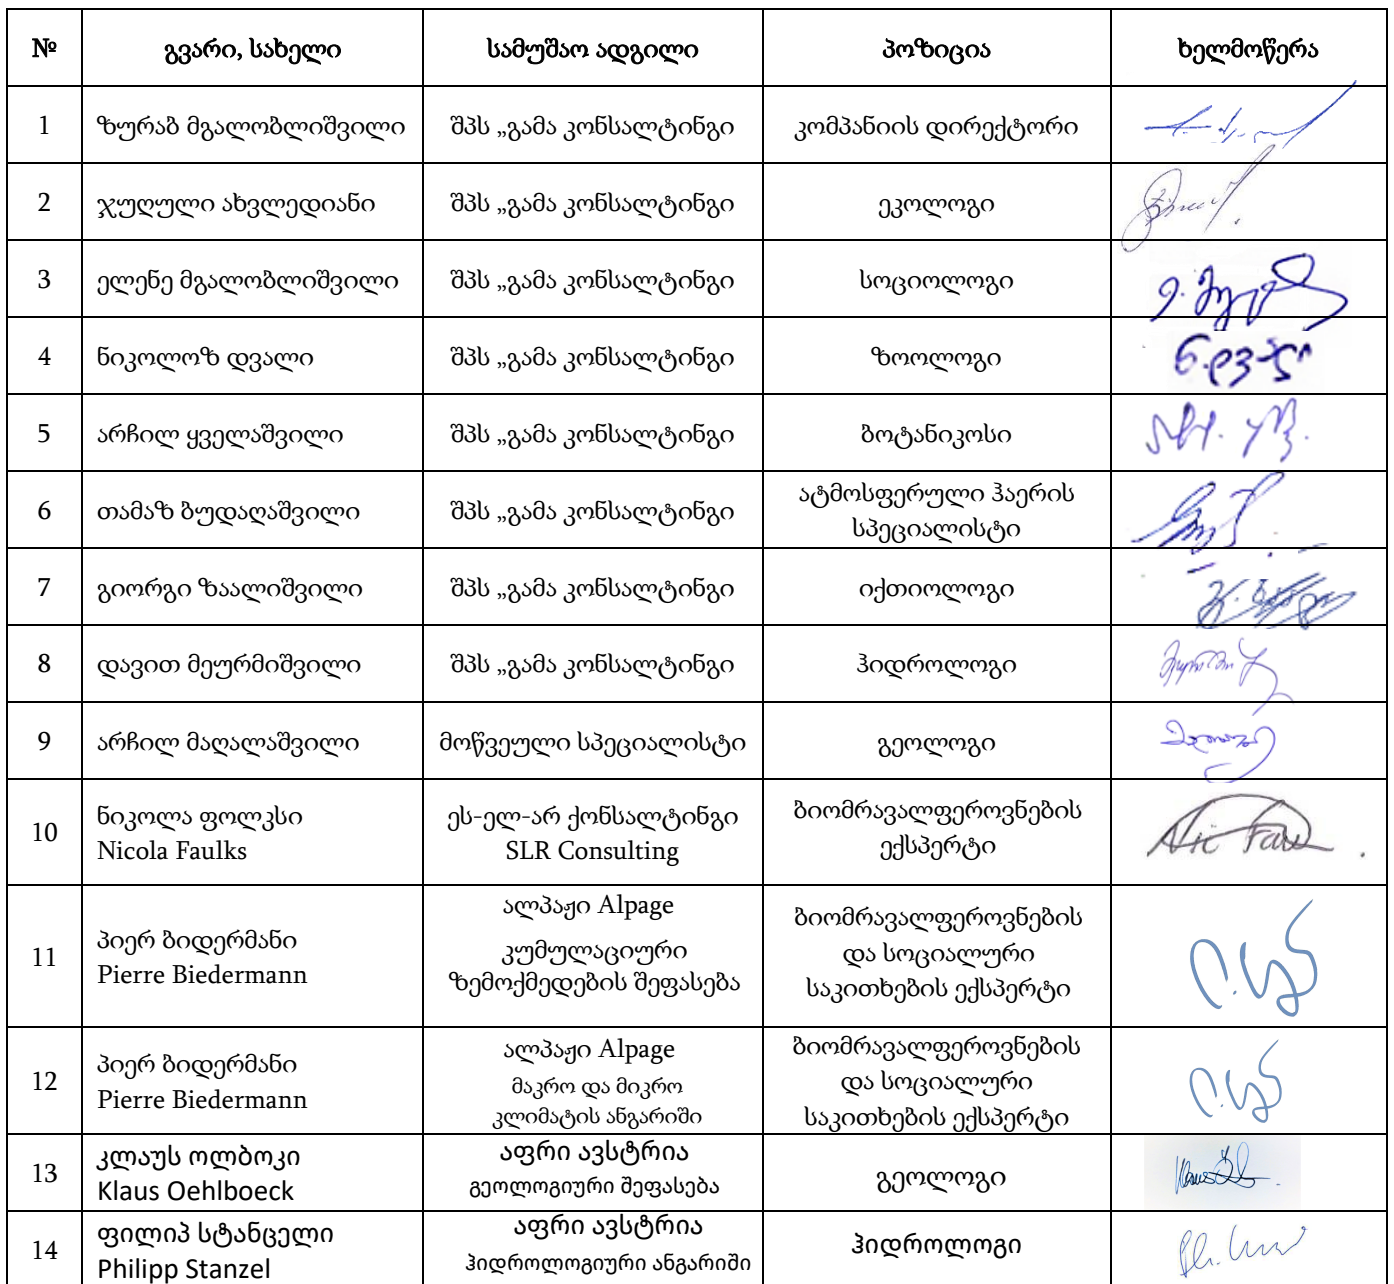 № გვარი, სახელი სამუშაო ადგილი პოზიცია ხელმოწერა
1 ზურაბ მგალობლიშვილი შპს „გამა კონსალტინგი კომპანიის დირექტორი
2 ჯუღული ახვლედიანი შპს „გამა კონსალტინგი ეკოლოგი
3 ელენე მგალობლიშვილი შპს „გამა კონსალტინგი სოციოლოგი
4 ნიკოლოზ დვალი შპს „გამა კონსალტინგი ზოოლოგი
5 არჩილ ყველაშვილი შპს „გამა კონსალტინგი ბოტანიკოსი
6 თამაზ ბუდაღაშვილი შპს „გამა კონსალტინგი ატმოსფერული ჰაერის
სპეციალისტი
7 გიორგი ზაალიშვილი შპს „გამა კონსალტინგი იქთიოლოგი
8 დავით მეურმიშვილი შპს „გამა კონსალტინგი ჰიდროლოგი
9 არჩილ მაღალაშვილი მოწვეული სპეციალისტი გეოლოგი
10 ნიკოლა ფოლკსი ეს-ელ-არ ქონსალტინგი ბიომრავალფეროვნების
Nicola Faulks SLR Consulting ექსპერტი
11 პიერ ბიდერმანი
Pierre Biedermann
ალპაჟი Alpage
კუმულაციური
ზემოქმედების შეფასება
ბიომრავალფეროვნების
და სოციალური
საკითხების ექსპერტი
12 პიერ ბიდერმანი
Pierre Biedermann
ალპაჟი Alpage
მაკრო და მიკრო
კლიმატის ანგარიში
ბიომრავალფეროვნების
და სოციალური
საკითხების ექსპერტი
13 კლაუს ოლბოკი
Klaus Oehlboeck
აფრი ავსტრია
გეოლოგიური შეფასება
გეოლოგი
14 ფილიპ სტანცელი
Philipp Stanzel
აფრი ავსტრია
ჰიდროლოგიური ანგარიში
ჰიდროლოგი